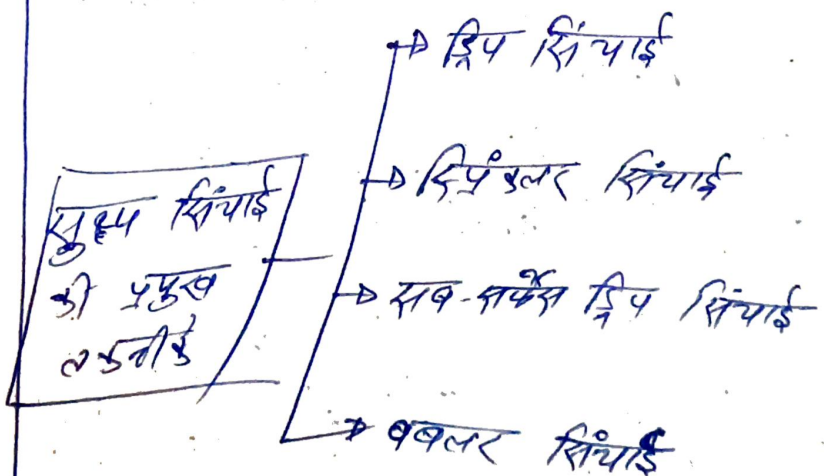 सुक्ष्म सिंचाई
की प्रमुख
तकनीके
ड्रिप सिंचाई
स्प्रिंकलर सिंचाई
सब-सर्फेस ड्रिप सिंचाई
बबलर सिंचाई